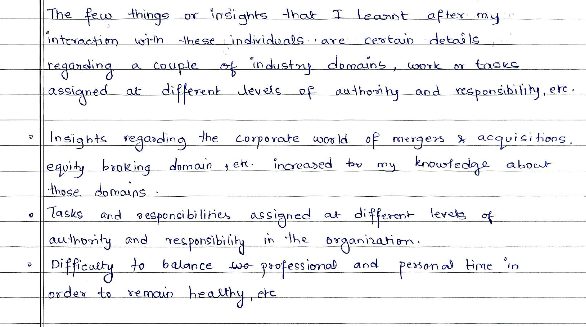 The few things or insights that I learnt after my
interaction with these individuals are certain details
regarding a couple of industry domains, work or tasks
assigned at different levels of authority and responsibility, etc.
• Insights regarding the corporate world of mergers & acquisitions,
equity broking domain, etc. increased my knowledge about
those domains.
• Tasks and responsibilities assigned at different levels of
authority and responsibility in the organization.
• Difficulty to balance professional and personal time in
order to remain healthy, etc